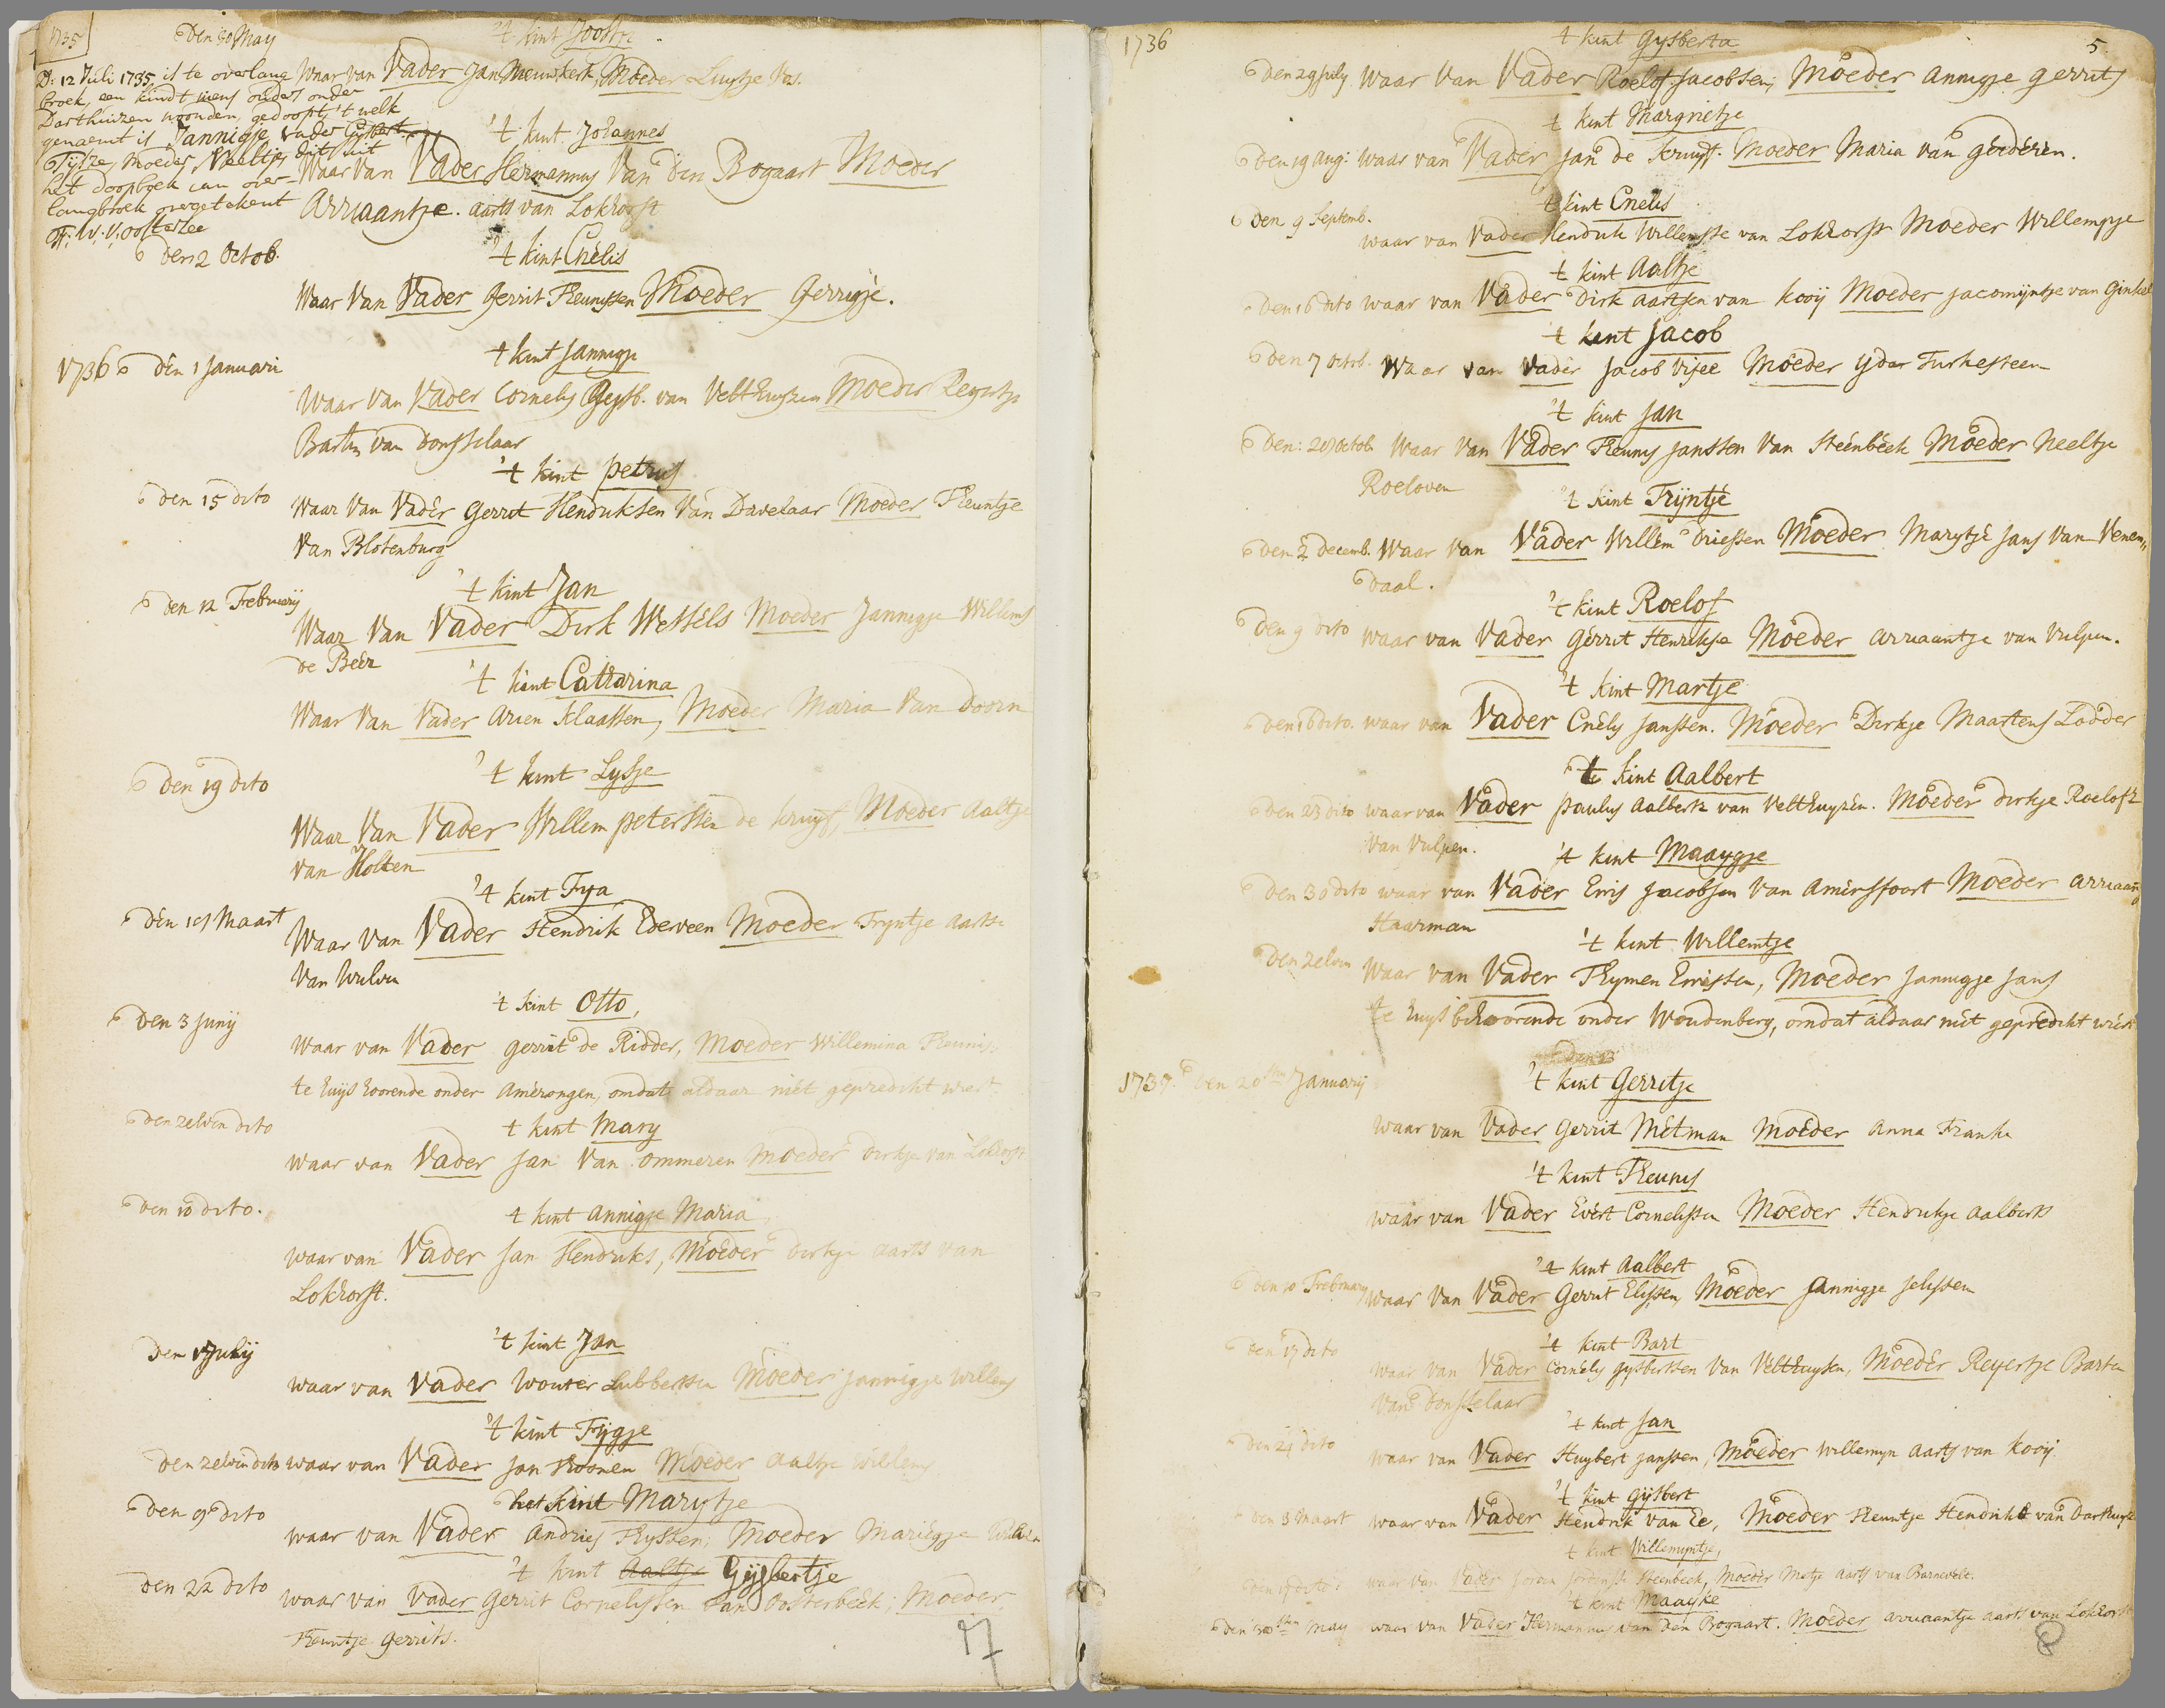 1735
Den 30 May
't kint Joostje
Waar van Vader Jan Nieuwkerk, Moeder Luytje Vos.
D: 12 Juli 1735 is te overlang
broek, een kindt wiens ouders onder
Darthuizen woonden, gedoopt, 't welk
genaemt is Jannigje, vader Gijsbert
Tijsze, Moeder Neeltje, dit uit
het doopboek van over-
langbroek overgetekent
F: W: V: Oosterzee
't kint Johannes
Waar van Vader Hermannus Van den Bogaart Moeder
Arriaantje aarts van Lokhorst
't kint Cnelis
Den 2 Octob.
Waar Van Vader Gerrit Theunissen Moeder Gerrigje.
't kint Jannigje
1736 den 1 Januari
Waar Van Vader Cornelis Gysb. van Velthuyzen Moeder Reyertje
Barten van Donsselaar
't kint petrus
den 15 dito
Waar Van Vader Gerrit Henduksen Van Davelaar Moeder Theuntje
Van Blotenburg
't kint Jan
den 12 February
Waar Van Vader Dirk Wessels Moeder Jannigje Willems
de Beer
't kint Catharina
Waar Van Vader Arien Klaassen, Moeder Maria Van Doorn
't kint Lysje
Den 19 dito
Waar Van Vader Willem peterssen de kruyf, Moeder Aaltje
van Holten
't kint Fya
Den 1es Maart
Waar Van Vader Hendrik Ederveen Moeder Tryntje aarts
Van Wulven
't kint Otto,
Den 3 Junij
Waar van Vader gerrit de Ridder, Moeder Willemina Theunis.
te huys hoorende onder Amerongen, omdat aldaar niet gepredikt wiert
den zelven dito
't kint Mary
waar van Vader Jan Van ommeren Moeder Dirkje van Lokhorst
Den 10 dito.
't kint Annigje Maria
waar van Vader Jan Hendriks, Moeder Dirkje aarts van
Lokhorst.
't kint Jan
Den 1 Julij
waar van Vader Wouter Lubbertsen Moeder Jannigje Willems
't kint Fijgje
Den zelven dito waar van Vader Jan Thoonen Moeder Aaltje Willems
het kint Marytje
Den 9 dito
waar van Vader Andries Thyssen, Moeder Marigje
't kint Aaltje Gijsbertje
Den 22 dito
waar van Vader Gerrit Cornelissen Van Oosterbeek; Moeder
Theuntje Gerrits.
7
1736
5.
't kint Gysberta
Den 29 July waar Van Vader Roelof Jacobsen, Moeder Annigje gerrits
't kint Margrietje
Den 19 aug: waar van Vader Jan de kruyf. Moeder Maria van géederen.
't kint Cnelis
Den 9 Septemb.
waar van Vader Henduk Willemsse van Lokhorst Moeder Willemptje
't kint Aaltje
Den 16 dito waar van Vader Dirk aartsen van kooij Moeder Jacomijntje van Ginkel
't kent Jacob
Den 7 Octob. Waar van Vader Jacob Visee Moeder Yda Turkesteen
't kint Jan
Den: 20 octob. Waar Van Vader Theunis Janssen Van Steenbeek Moeder Neeltje
Roeloven
't kint Trijntje
Den 2 decemb. Waar Van Vader Willem Driessen Moeder Marytje Jans Van Venen„
daal.
't kint Roelof
Den 9 dito waar van Vader Gerrit Henrikse Moeder Arriaantje van Vulpen.
't kint Martje
Den 16 dito. waar van Vader Cnelis Janssen. Moeder Dirkje Maartens Lodder
't kint Aalbert
Den 23 dito waar van Vader paulus Aalberts van Velthuyzen. Moeder Dirkje Roelofs
van Vulpen.
't kint Maaygje
Den 30 dito waar van Vader Erris Jacobsen Van Amersfoort Moeder Arriaan
Haarman
't kint Willemtje
Den zelven
Waar van Vader Thymen Errissen, Moeder Jannigje Jans
te huys behoorende onder Woudenberg, omdat aldaar niet gepredikt wiert
1737. Den 20sten January
't kint Gerritje
waar van Vader Gerrit Mètman Moeder Anna Franke
't kint Theunis
waar van Vader Evert Cornelissen Moeder Hendrikje Aalberts
't kint Aalbert
Den 10 February waar Van Vader Gerrit Elissen, Moeder Jannigje Jelissen
't kint Bart
Den 17 dito
waar van Vader Cornelis Gysbertsen Van Velthuysen, Moeder Reyertje Barten
Van Donsselaar
't kint Jan
Den 24 dito
waar van Vader Huybert Janssen, Moeder Willemyn Aarts van kooij
't kint Gijsbert
Den 3 Maart waar van Vader Hendrik van Ee, Moeder Theuntje Hendriks van Darthuyse
't kint Willemyntje,
Den 17 dito: waar van Vader Steenbeek, Moeder Metje aarts van Barnevelt.
't kint Maayke
Den 30sten May waar van Vader Hermannus van den Bogaart. Moeder Arriaantje aarts van Lokhorst
8